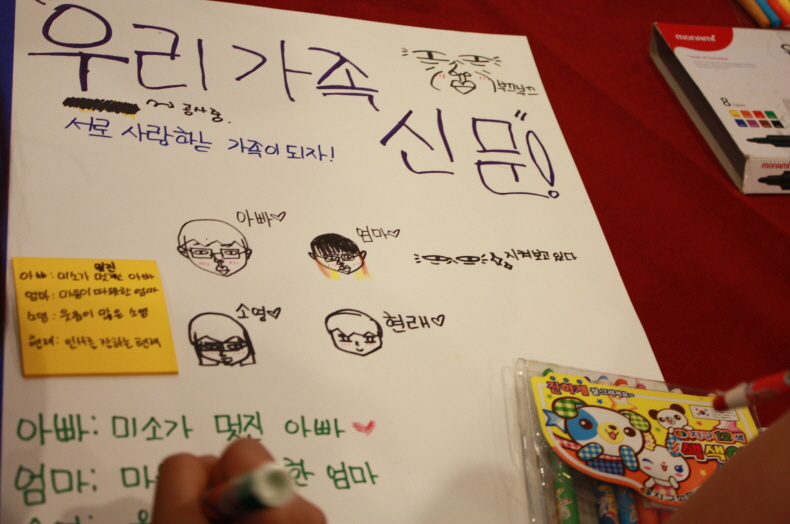 "우리가족
신문"!
부끄부끄
~ 공사중.
서로 사랑하는 가족이되자!
아빠♡
엄마♡
지켜보고 있다
소영♡
현래♡
멋진
아빠: 미소가 멋찐 아빠
엄마: 마음이 따뜻한 엄마
소영: 웃음이 많은 소영
현래: 인사를 잘하는 현래
아빠: 미소가 멋진 아빠 ♥
엄마: 마 한 엄마
monami
8 Colors
monami
진하게
지구 12색
색색